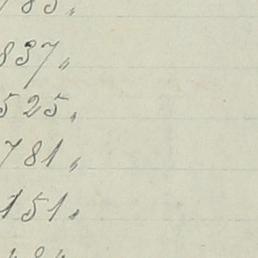 785„
837„
525„
781„
151„